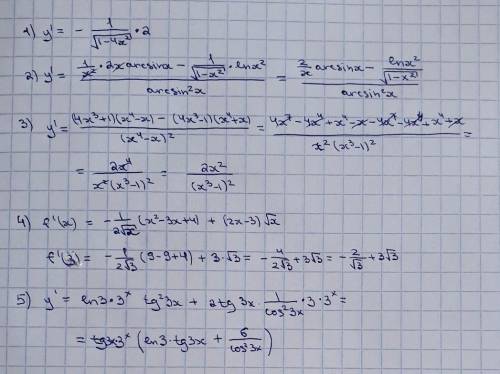 1) y' = - 1/√(1-4x²) · 2
2) y' = (1/x² · 2x arcsinx - 1/√(1-x²) · lnx²)/arcsin²x = (2/x arcsinx - lnx²/√(1-x²))/arcsin²x
3) y' = ((4x³+1)(x⁴-x) - (4x³-1)(x⁴+x))/(x⁴-x)² = (4x⁷-4x⁴+x⁴-x-4x⁷-4x⁴+x⁴+x)/(x²(x³-1)²) =
= 2x⁴/(x²(x³-1)²) = 2x²/(x³-1)²
4) f'(x) = - 1/(2√x) (x²-3x+4) + (2x-3)√x
f'(3) = - 1/(2√3) (9-9+4) + 3·√3 = - 4/(2√3) + 3√3 = - 2/√3 + 3√3
5) y' = ln3·3ˣ tg²3x + 2tg 3x · 1/cos²3x · 3·3ˣ =
= tg3x·3ˣ (ln3·tg3x + 6/cos²3x)